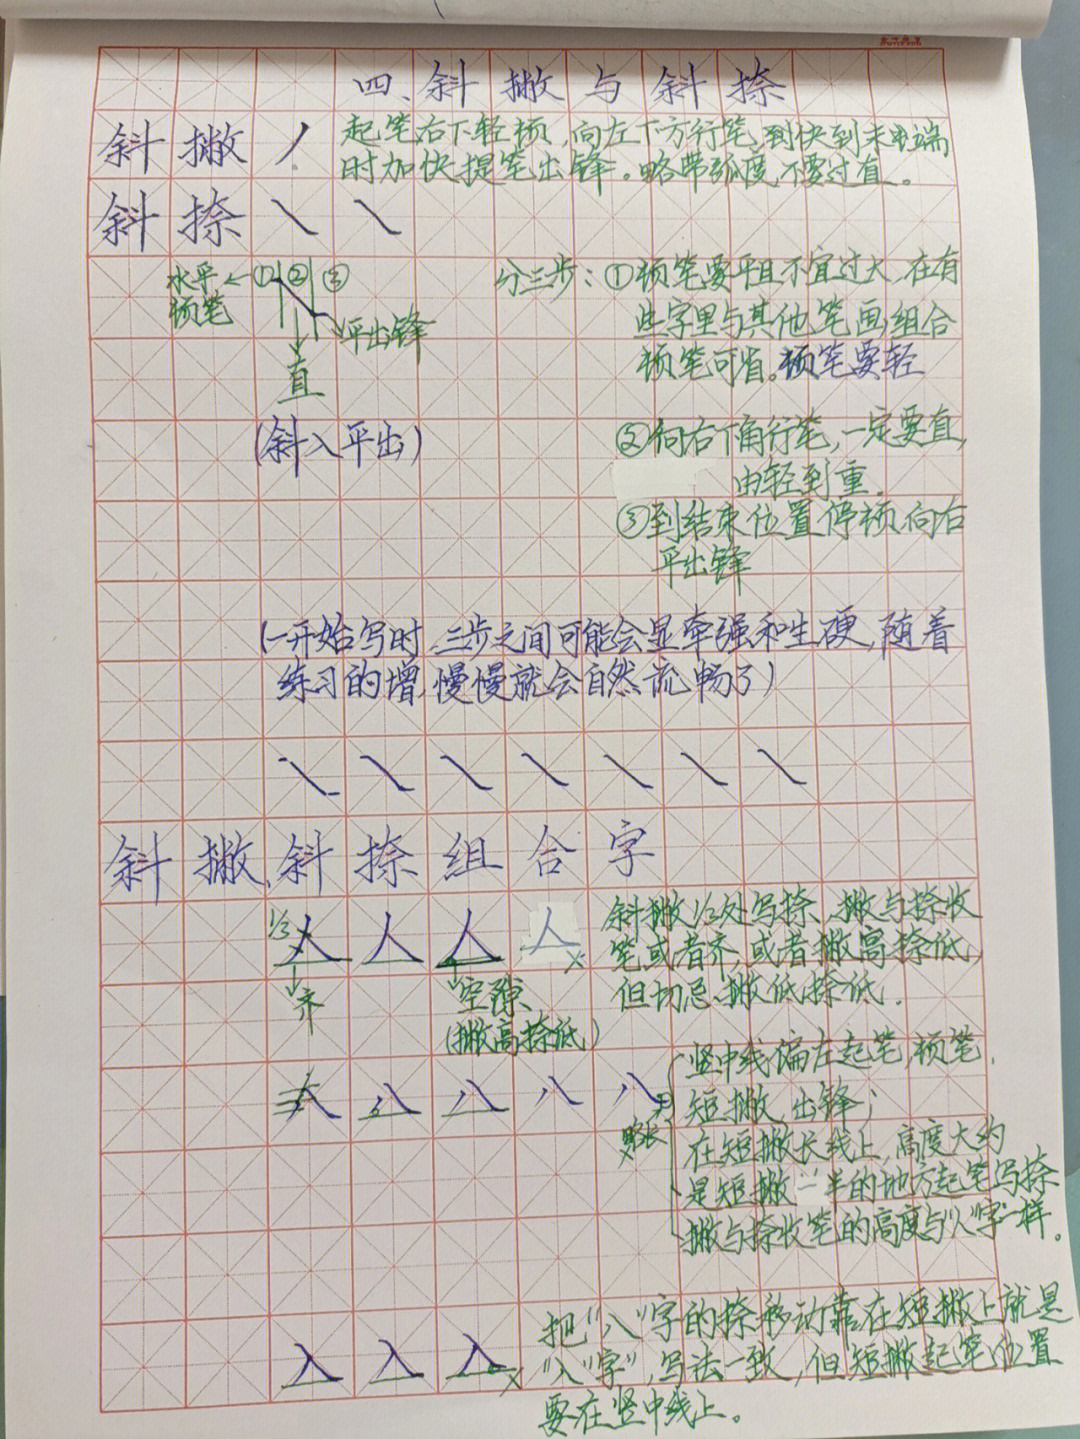 四、斜撇与斜捺
斜撇丿 起笔右下轻顿,向左下方行笔,到快到末尾端
时加快提笔出锋。略带弧度,不要过直。
斜捺㇏㇏
水平
顿笔
①②③
平出锋
直
(斜入平出)
分三步:①顿笔要平且不宜过大,在有
些字里与其他笔画组合
顿笔可省。顿笔要轻
②向右下角行笔,一定要直,
由轻到重.
③到结束位置停顿,向右
平出锋
(一开始写时,三步之间可能会显牵强和生硬,随着
练习的增,慢慢就会自然流畅了)
㇏㇏㇏㇏㇏㇏㇏
斜撇、斜捺组合字
1/3 人人人人 x
齐
空隙
(撇高捺低)
斜撇1/3处写捺、撇与捺收
笔或者齐,或者撇高捺低,
但切忌、撇低捺低.
八八八八
略长
竖中线偏左起笔,顿笔.
短撇,出锋;
在短撇长线上,高度大约
是短撇一半的地方起笔写捺
撇与捺收笔的高度与“人”字一样。
入入入 x
把“八”字的捺移动靠在短撇上就是
“入”字”,写法一致,但短撇起笔位置
要在竖中线上。